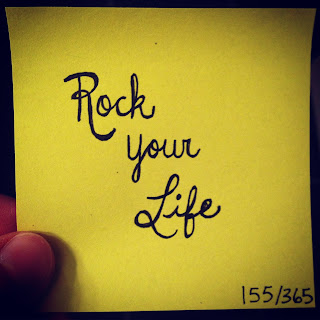 Rock
your
Life
155/365